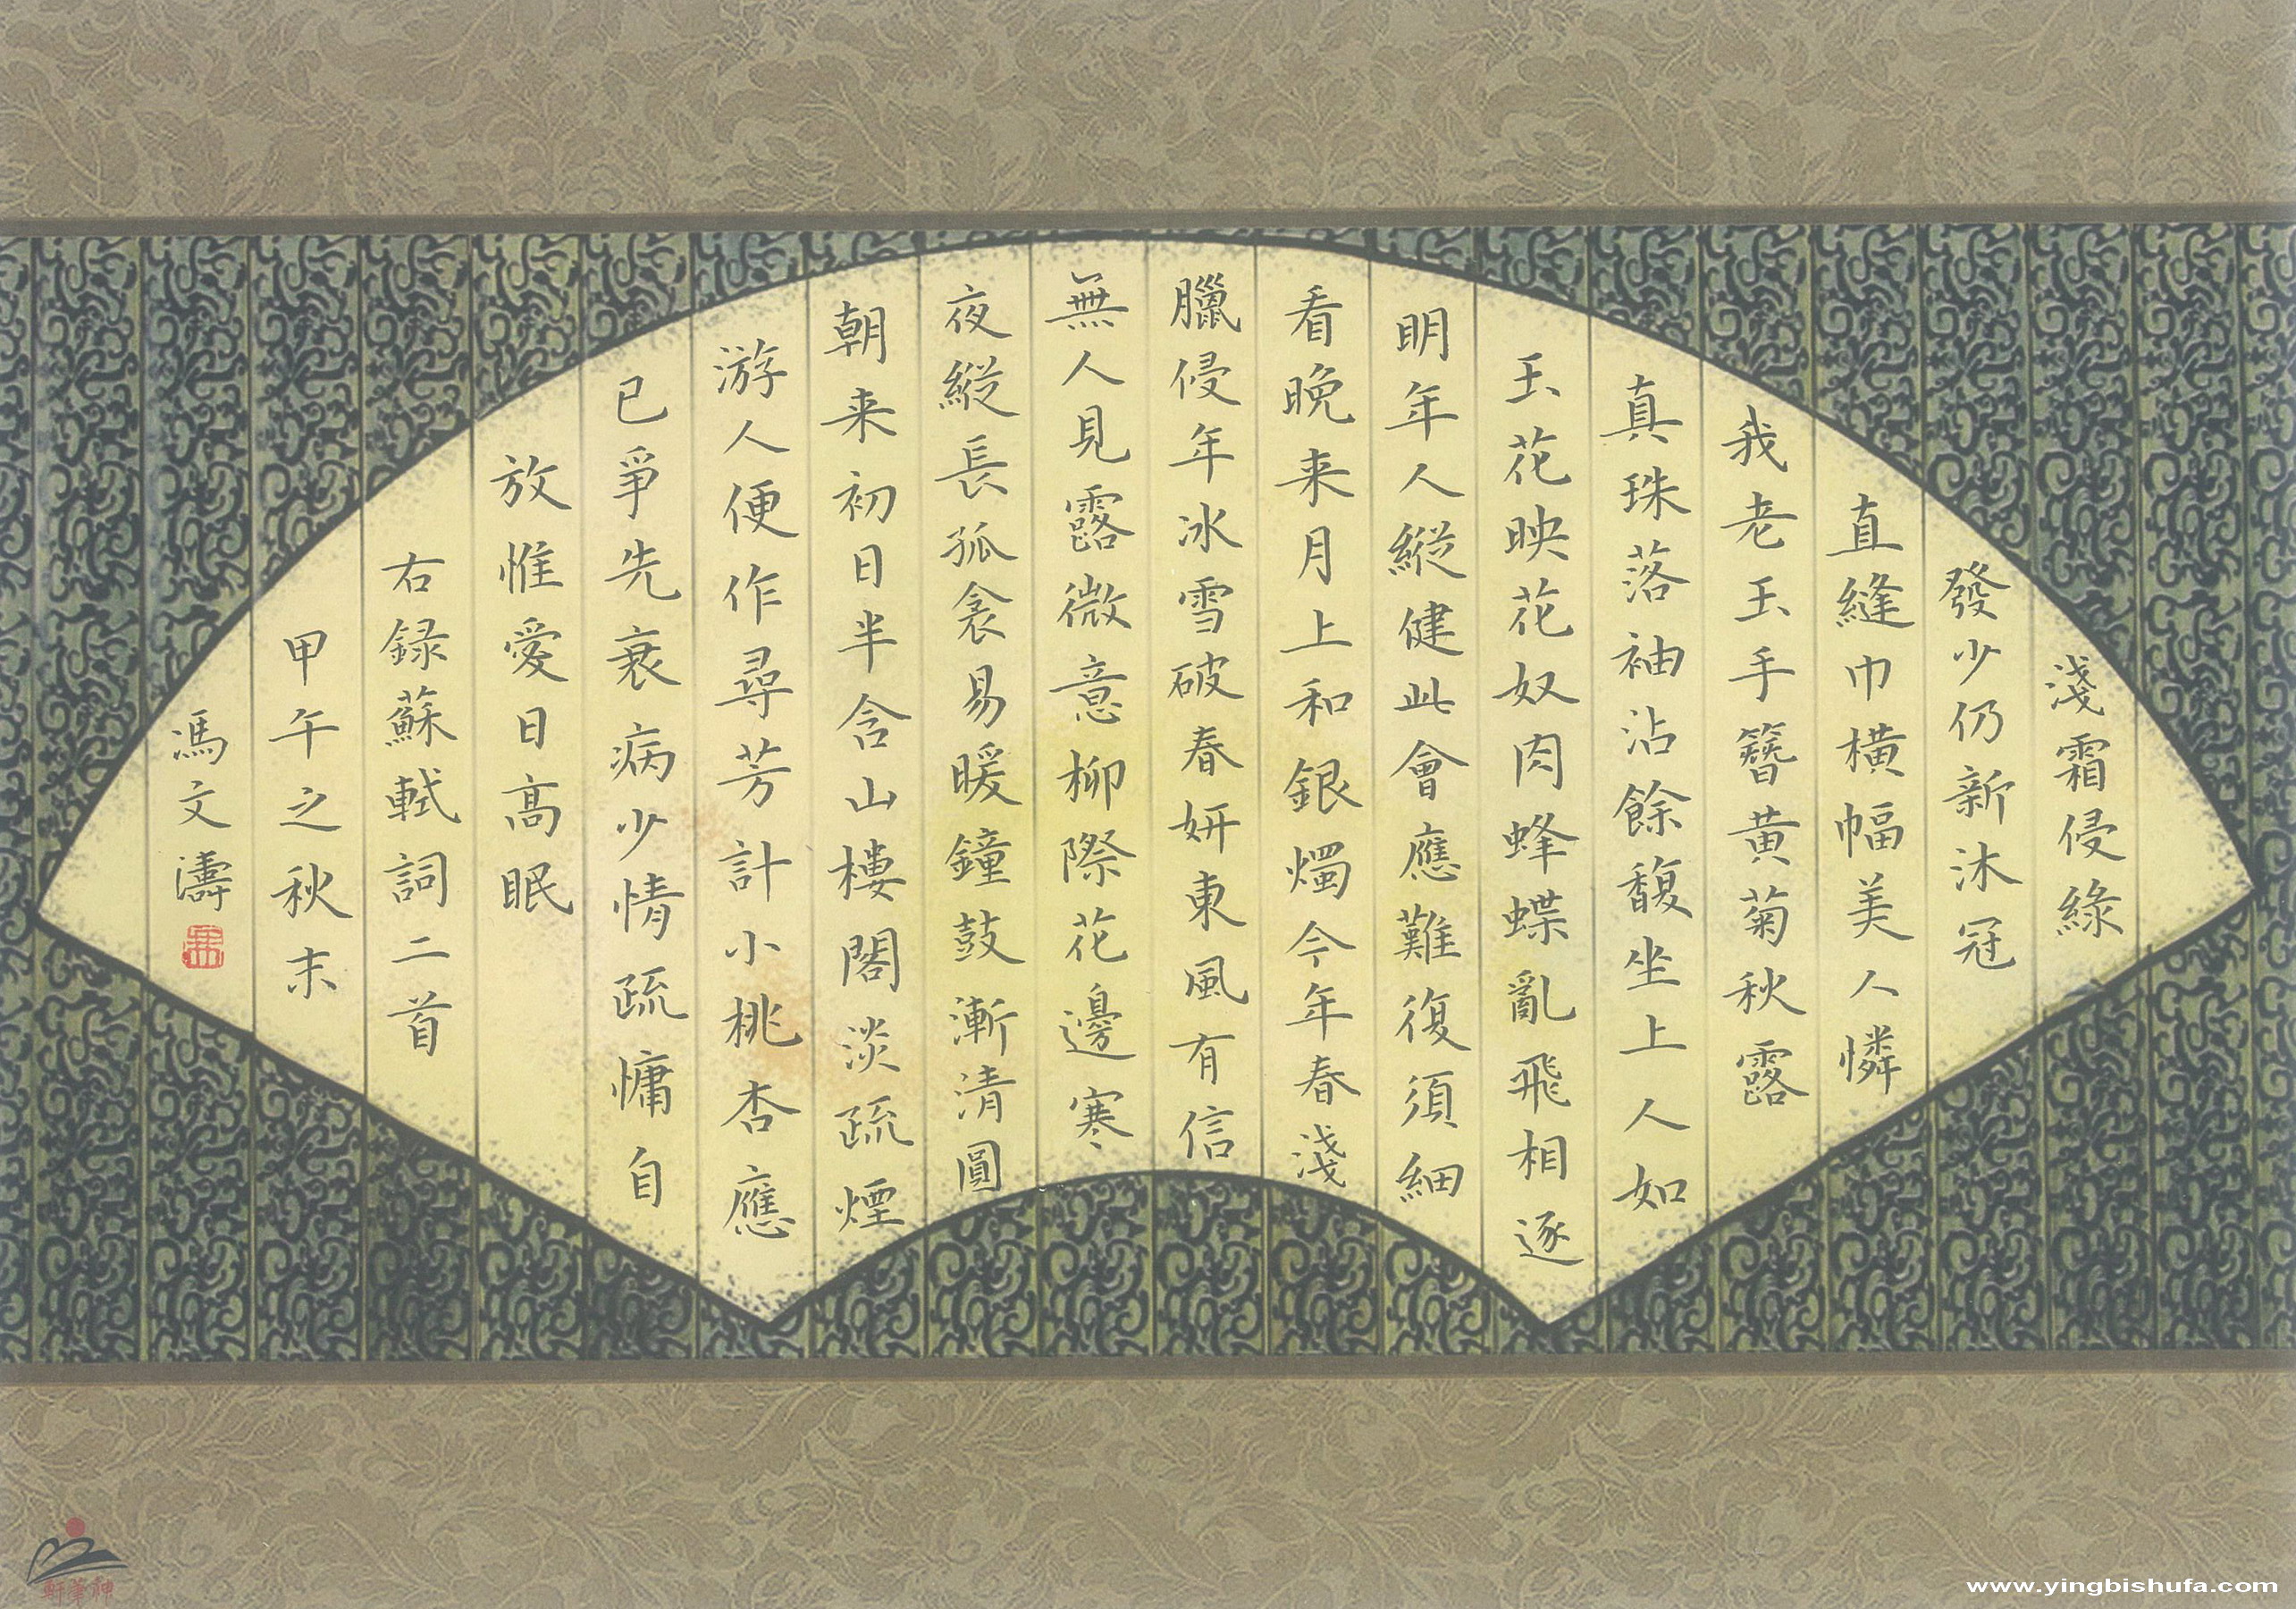 淺霜侵綠
發少仍新沐冠
直縫巾橫幅美人憐
我老玉手簪黃菊秋露
真珠落袖沾餘馥坐上人如
玉花映花奴肉蜂蝶亂飛相逐
明年人縱健此會應難復須細
看晚来月上和銀燭今年春淺
臘侵年冰雪破春妍東風有信
無人見露微意柳際花邊寒
夜縱長孤衾易暖鐘鼓漸清圓
朝来初日半含山樓閣淡疏煙
游人便作尋芳計小桃杏應
已爭先衰病少情疏慵自
放惟愛日高眠
右録蘇軾詞二首
甲午之秋末
馮文濤
軒筆神
www.yingbishufa.com